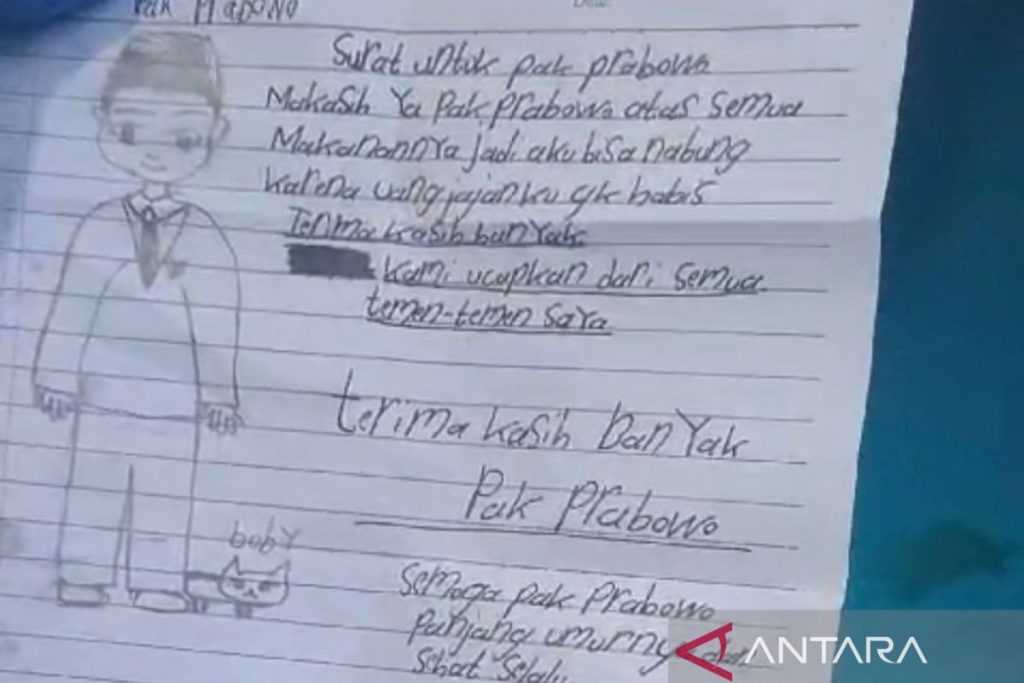 Pak
Surat untuk pak prabowo
Makasih Ya Pak Prabowo atas semua
Makanannya jadi aku bisa nabung
karena uang jajanku gk habis
Terima kasih banyak
kami ucapkan dari semua
temen-temen saya
terima kasih banyak
Pak Prabowo
boby
semoga pak Prabowo
Panjang umurnya
sehat selalu
ANTARA